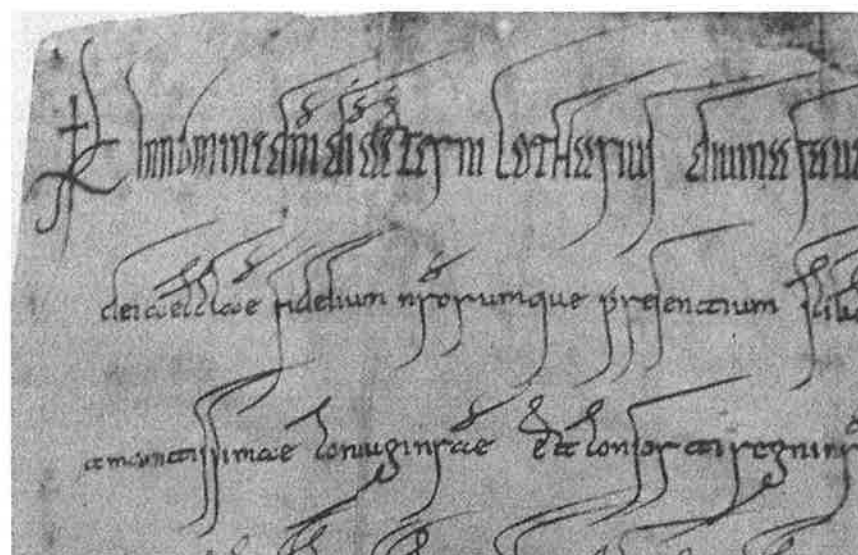 In nomine dni di aeterni Lotharius divina fave
dei aecclae fidelium nrorumque presentium scili
amantissimae coniugi nrae et consorti regni nr